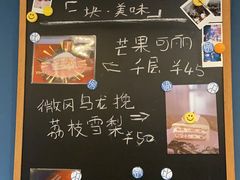 块·美味
芒果可丽
千层 ¥45
微风乌龙挽
荔枝雪梨
¥50